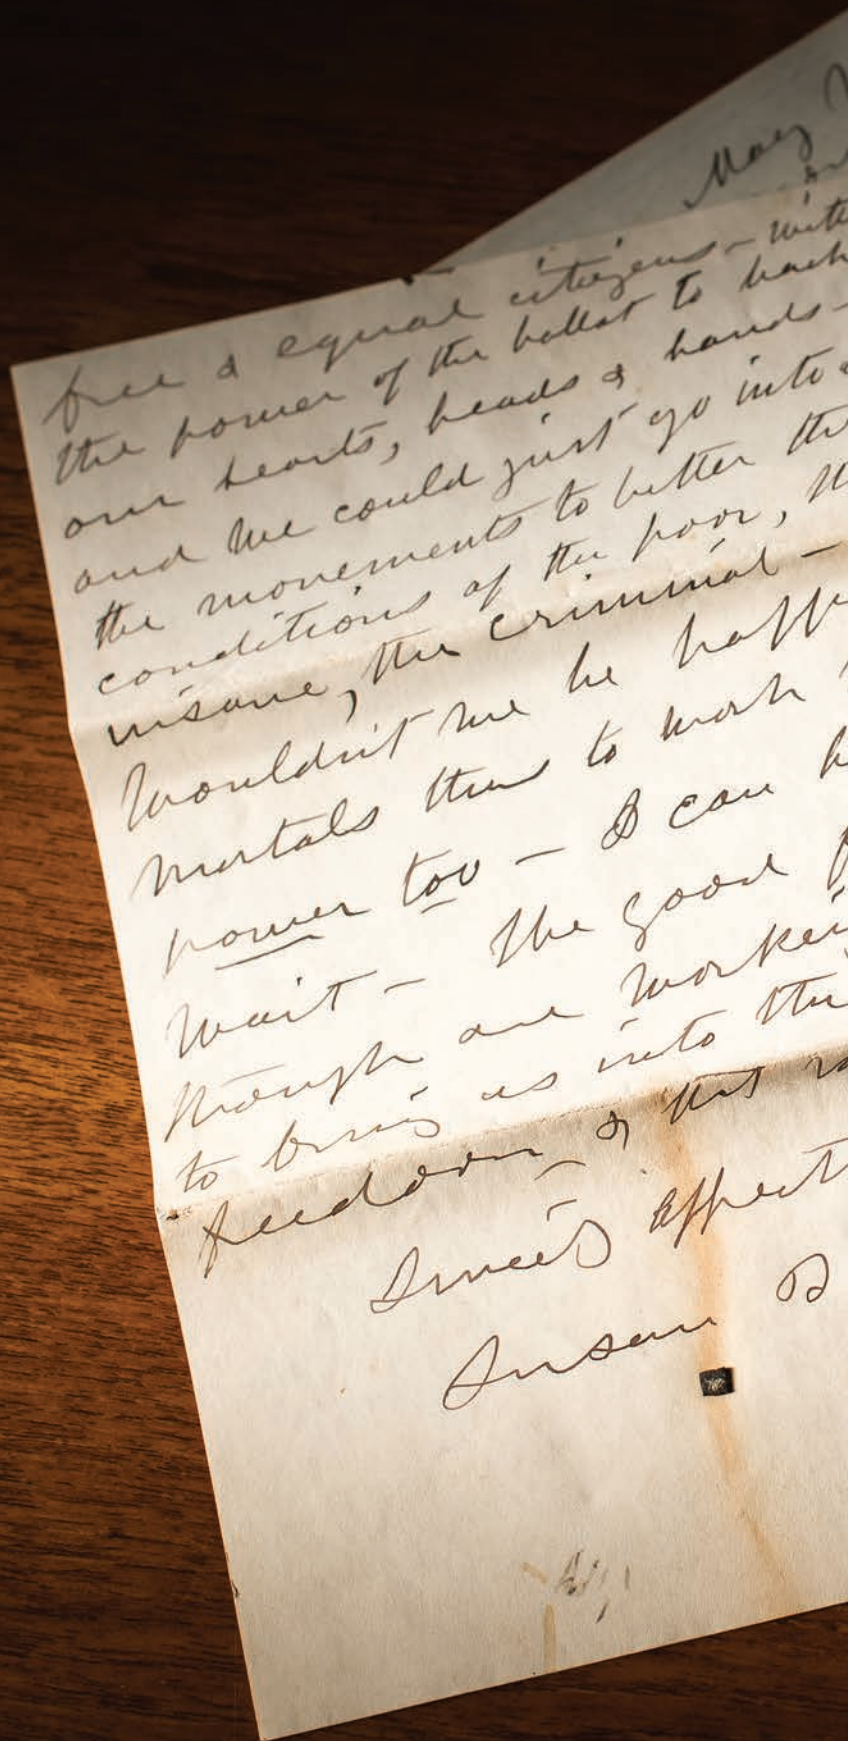 May
free & equal citizens - with
the power of the ballot to back
our hearts, heads & hands -
and we could just go into
the movements to better the
conditions of the poor, th
insane, the criminal -
Wouldn't we be happ
mortals thus to work
power too - I can h
wait - The good f
though are workin
to bring us into this
freedom - & that
Sincely Affect
Susan B